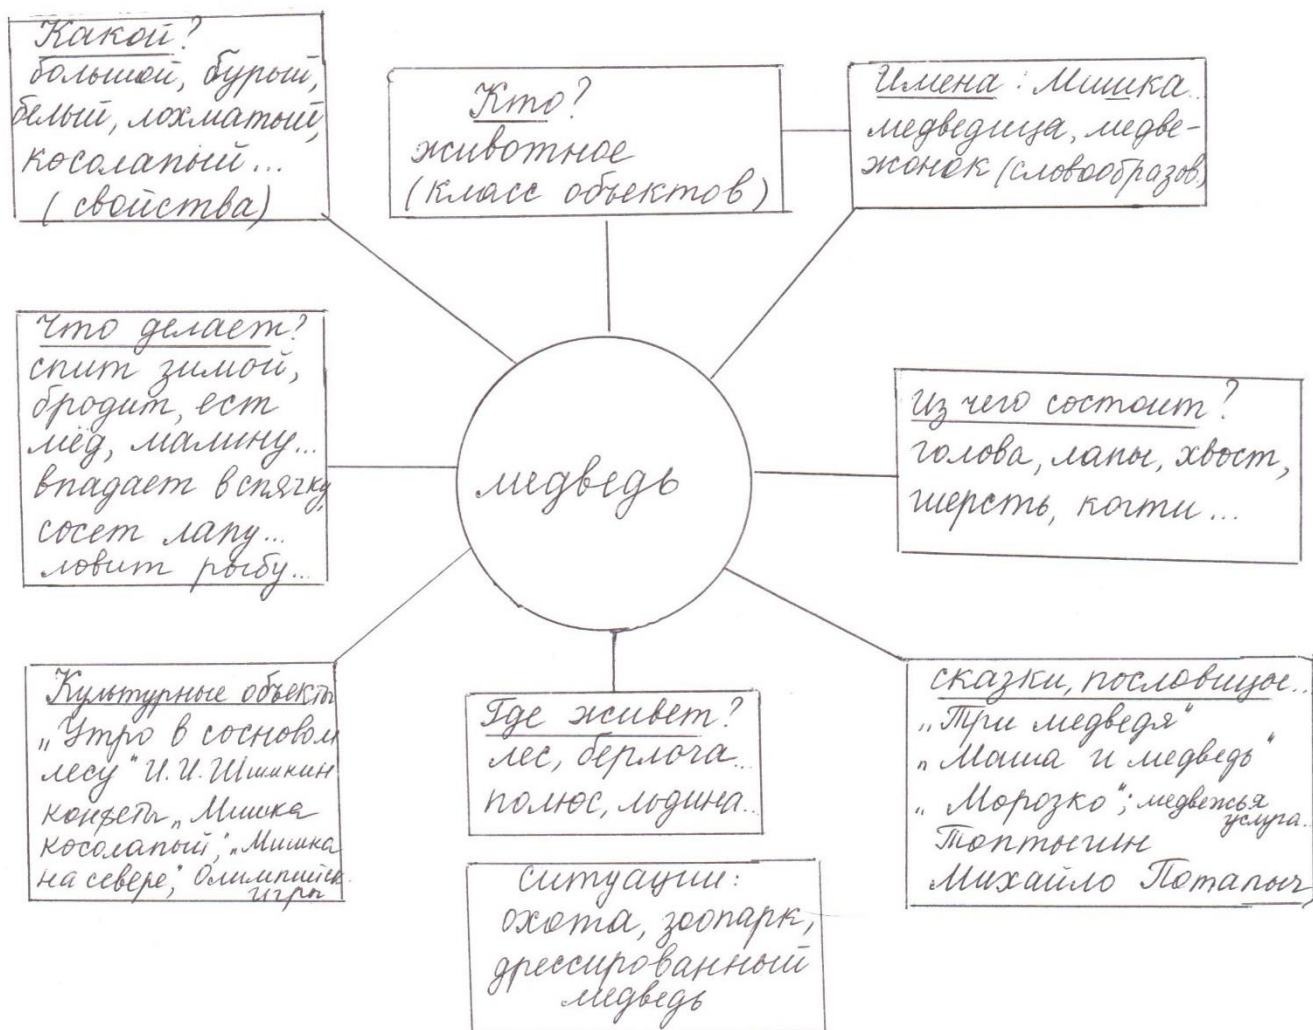 Какой?
большой, бурый,
белый, лохматый,
косолапый...
(свойства)
Кто?
животное
(класс объектов)
Имена: Мишка..
медведица, медве-
жонок (словообразов.)
Что делает?
спит зимой,
бродит, ест
мёд, малину...
впадает в спячку,
сосет лапу...
ловит рыбу...
медведь
Из чего состоит?
голова, лапы, хвост,
шерсть, когти...
Культурные объекты
„Утро в сосновом
лесу" И.И. Шишкин
конфеты „Мишка
косолапый", „Мишка
на севере", Олимпийск.
игры
Где живет?
лес, берлога...
полюс, льдина...
сказки, пословицы...
„Три медведя"
„Маша и медведь"
„Морозко"; медвежья
услуга...
Топтыгин
Михайло Потапыч
ситуации:
охота, зоопарк,
дрессированный
медведь